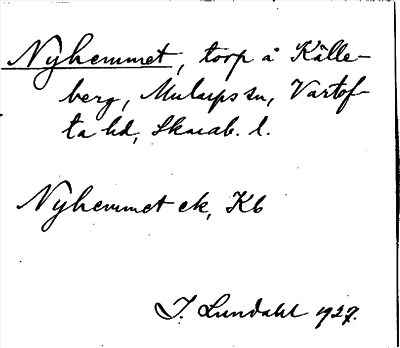 Nyhemmet, torp å Källe-
berg, Mularps sn, Vartof-
ta hd, Skarab. l.
Nyhemmet ek, Kb
I. Lundahl 1927.